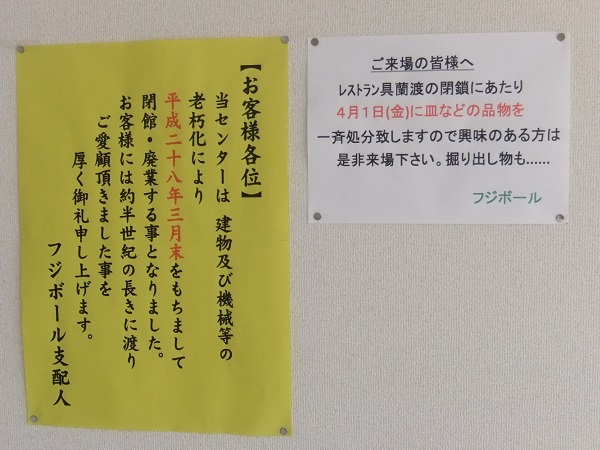 【お客様各位】
当センターは 建物及び機械等の
老朽化により
平成二十八年三月末をもちまして
閉館・廃業する事となりました。
お客様には約半世紀の長きに渡り
ご愛顧頂きました事を
厚く御礼申し上げます。
フジボール支配人
ご来場の皆様へ
レストラン具蘭渡の閉鎖にあたり
4月1日(金)に皿などの品物を
一斉処分致しますので興味のある方は
是非来場下さい。掘り出し物も......
フジボール